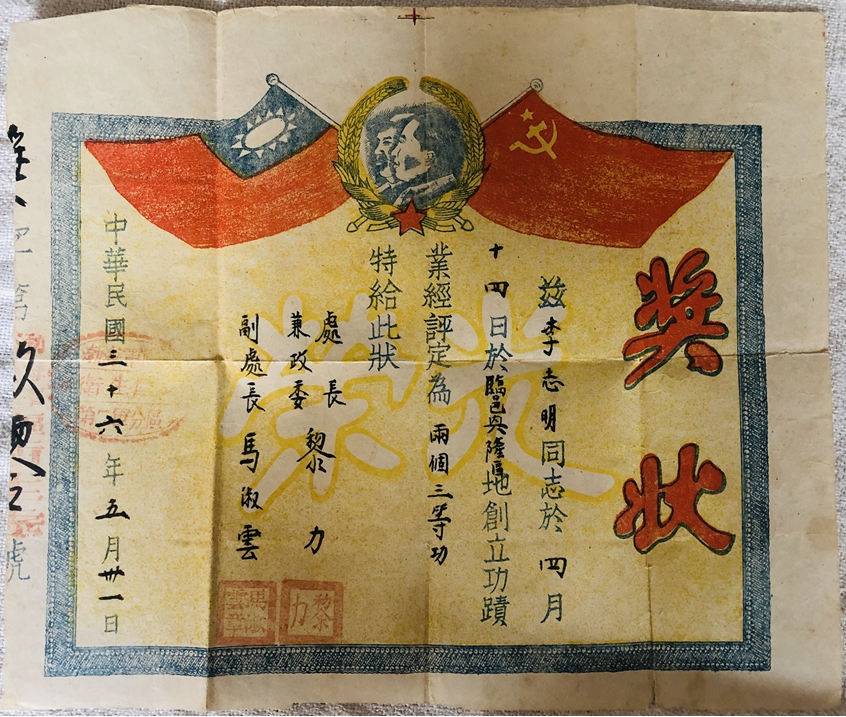 獎狀
茲李志明同志於四月
十四日於臨邑興隆區地創立功蹟
業經評定為兩個三等功
特給此狀
光榮
處長
兼政委 黎力
副處長 馬淑雲
中華民國三十六年五月卅一日
黎力
馬淑雲章
號